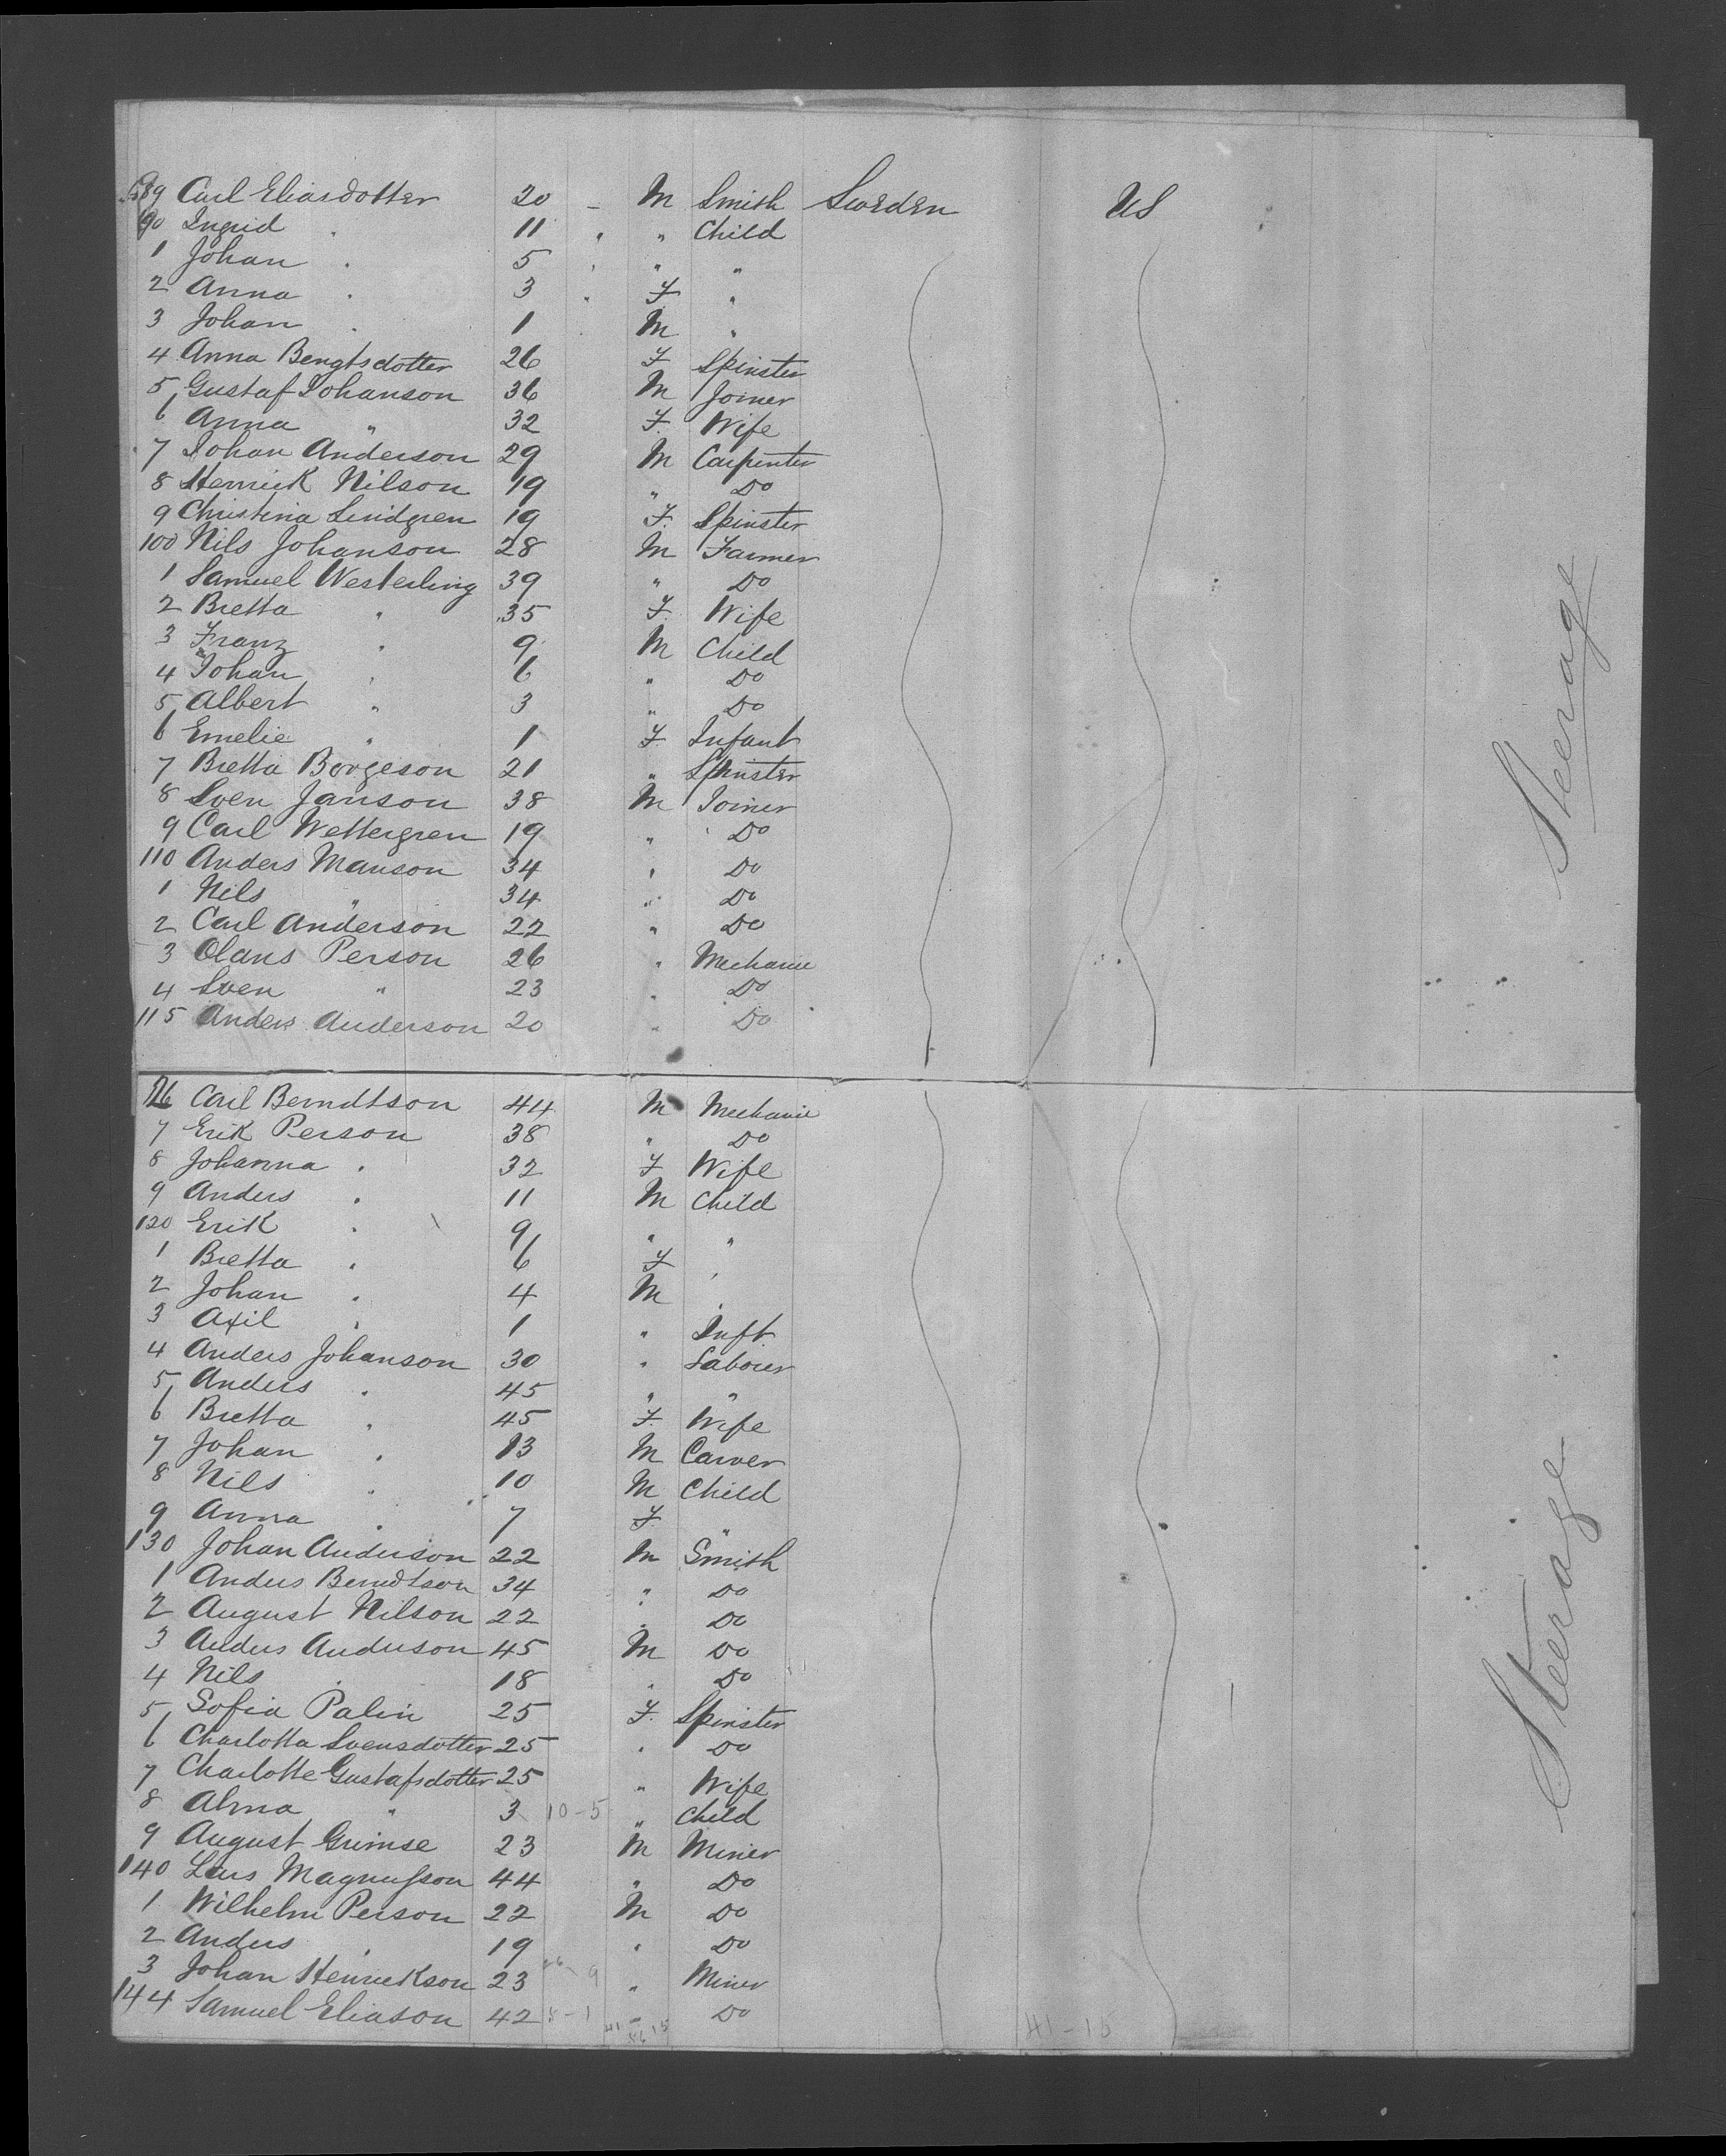 89 Carl Eliasdotter 20 - M Smith Sweden US
90 Ingrid " 11 " " Child
1 Johan " 5 " " "
2 Anna " 3 " F "
3 Johan " 1 M "
4 Anna Bengtsdotter 26 F Spinster
5 Gustaf Johanson 36 M Joiner
6 Anna " 32 F. Wife
7 Johan Anderson 29 M Carpenter
8 Henrick Nilson 19 " Do
9 Christina Lindgren 19 F. Spinster
100 Nils Johanson 28 M Farmer
1 Samuel Westerling 39 " Do
2 Bretta " 35 F. Wife
3 Franz " 9 M Child
4 Johan " 6 " Do
5 Albert " 3 " Do
6 Emelie " 1 F. Infant
7 Bretta Borgeson 21 " Spinster
8 Sven Janson 38 M Joiner
9 Carl Wettergren 19 " Do
110 Anders Manson 34 " Do
1 Nils " 34 " Do
2 Carl Anderson 22 " Do
3 Olaus Person 26 " Mechanic
4 Sven " 23 " Do
115 Anders Anderson 20 " Do
Steerage
116 Carl Berndtson 44 M Mechanic
7 Erik Person 38 " Do
8 Johanna " 32 F Wife
9 Anders " 11 M Child
120 Erik " 9 " "
1 Bretta " 6 F "
2 Johan " 4 M "
3 Axil " 1 " Inft
4 Anders Johanson 30 " Laborer
5 Anders " 45 " "
6 Bretta " 45 F. Wife
7 Johan " 13 M Carver
8 Nils " 10 M Child
9 Anna " 7 F. "
130 Johan Anderson 22 M Smith
1 Anders Berndtson 34 " Do
2 August Nilson 22 " Do
3 Anders Anderson 45 M Do
4 Nils " 18 " Do
5 Sofia Palin 25 F. Spinster
6 Charlotta Svensdotter 25 " Do
7 Charlotte Gustafsdotter 25 " Wife
8 Alma " 3 10-5 " Child
9 August Grimse 23 M Miner
140 Lars Magnusson 44 " Do
1 Wilhelm Person 22 M Do
2 Anders " 19 " Do
3 Johan Henrickson 23 " Miner
144 Samuel Eliason 42 " Do
41-15
Steerage